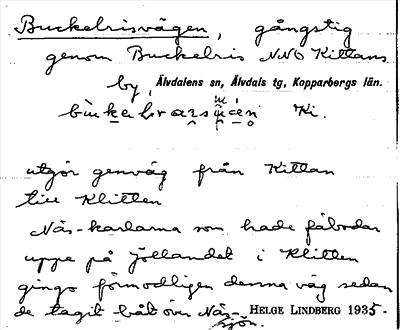 Buckelrisvägen, gångstig
genom Buckelris NNO Kittans
by, Älvdalens sn, Älvdals tg, Kopparbergs län.
Ki.
utgör genväg från Kittan
till Klitten
Näs-karlarna som hade fäbodar
uppe på Jöllandet i Klitten
gingo förmodligen denna väg sedan
de tagit båt över Näs-
sjön.
HELGE LINDBERG 1935.